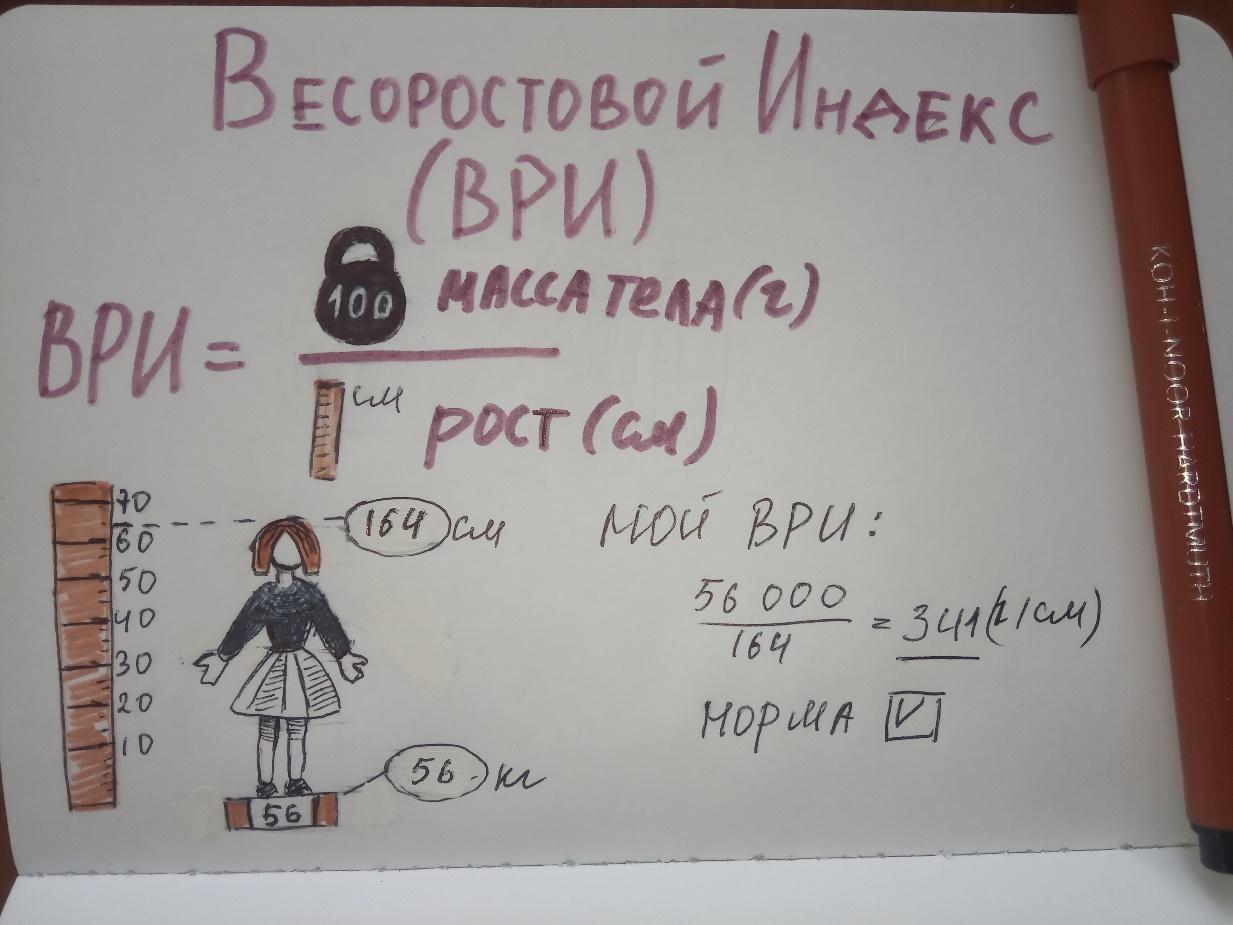 Весоростовой Индекс
(ВРИ)
ВРИ = 100 масса тела (г)
см рост (см)
70
60
50
40
30
20
10
164 см
56 кг
56
мой ВРИ:
56 000
164
= 341 (г/см)
норма ✓
KOH-I-NOOR HARDTMUTH